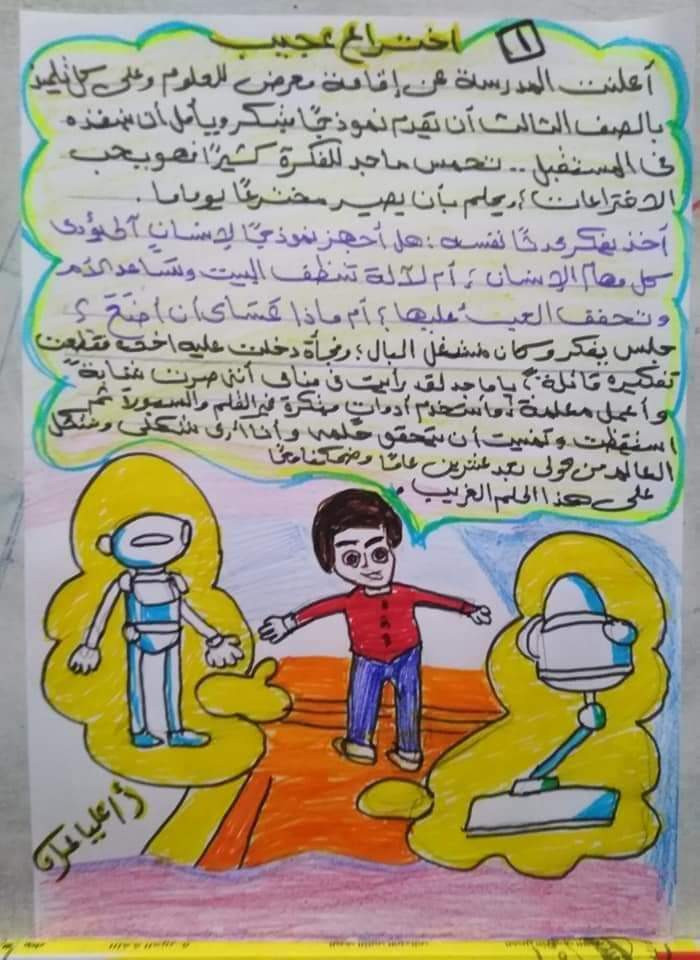 ١. اختراع عجيب
أعلنت المدرسة عن إقامة معرض للعلوم وعلى كل تلميذ
بالصف الثالث أن يقدم نموذجًا مبتكر ويأمل أن ينفذه
فى المستقبل .. تحمس ماجد للفكرة كثيرًا فهو يحب
الاختراعات ، ويحلم بأن يصير مخترعًا يوماما .
أخذ يفكر محدثًا نفسه : هل أجهز نموذجًا لإنسان آلى يؤدى
كل مهام الإنسان ؟ أم لآلة تنظف البيت وتساعد الأم
وتخفف العبء عليها ؟ أم ماذا عساى أن أصنع ؟
جلس يفكر وكان منشغل البال ؛ وفجأة دخلت عليه أخته فقطعت
تفكيره قائلة : ياماجد لقد رأيت فى منامى أننى صرت شابة
وأعمل معلمة وأستخدم أدوات مبتكرة غير القلم والسبورة ثم
استيقظت وتمنيت أن يتحقق حلمى وأنا أرى شكلى وشكل
العالم من حولى بعد عشرين عامًا وضحكنا معًا
على هذا الحلم الغريب .
أ/ علياء